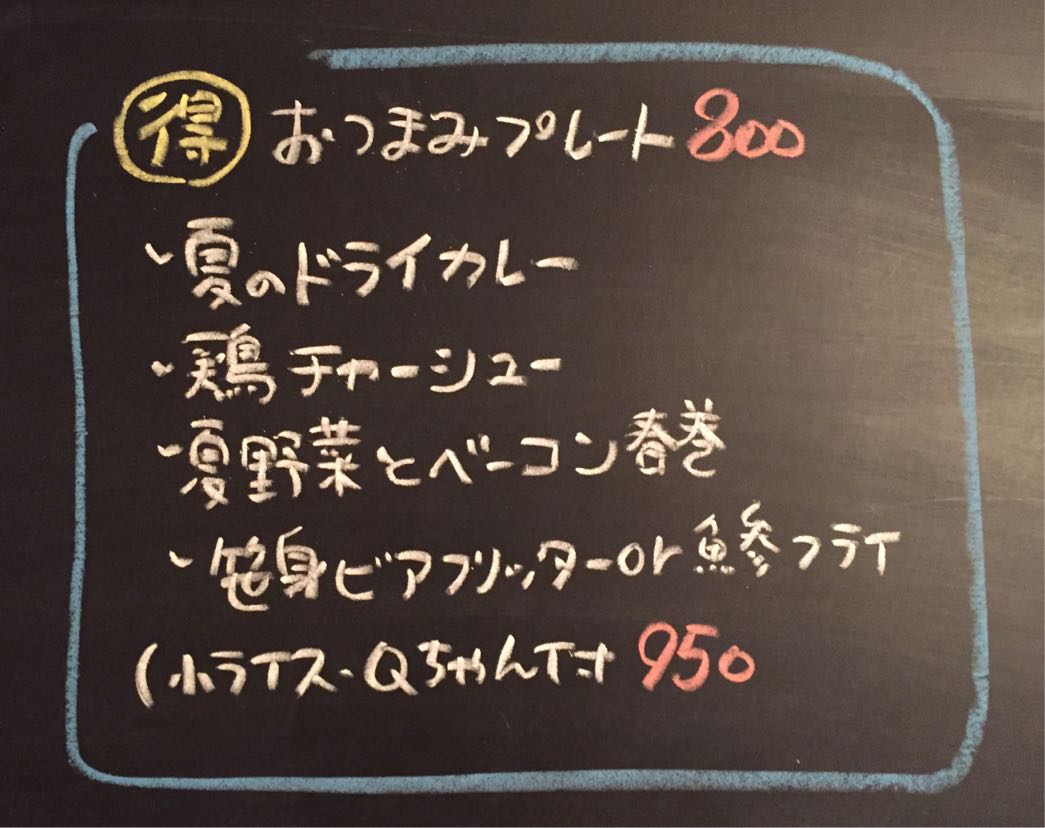 ㊝ おつまみプレート 800
・夏のドライカレー
・鶏チャーシュー
・夏野菜とベーコン春巻
・笹身ビアフリッターor鯵フライ
(小ライス・Qちゃん付 950